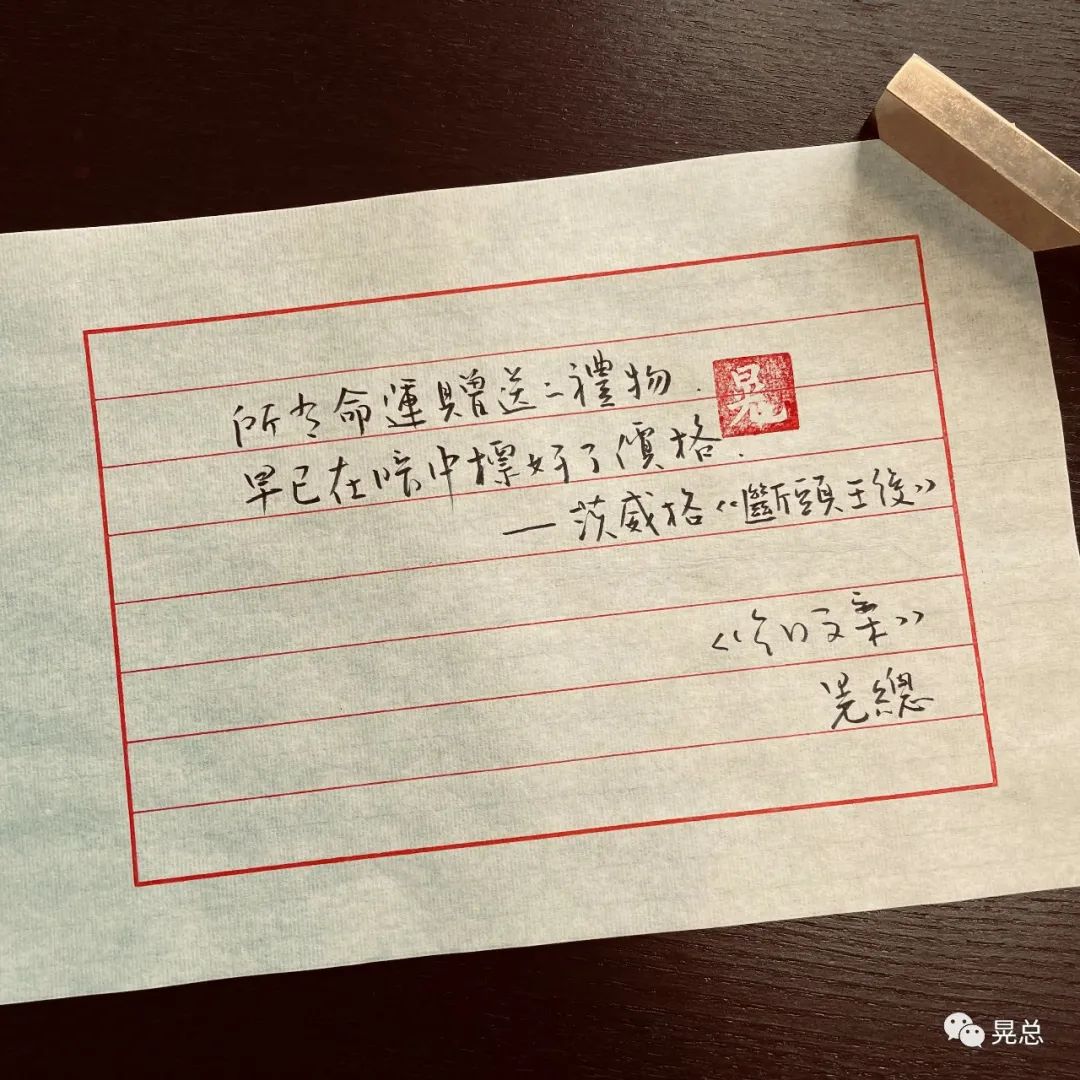 所有命運贈送之禮物.
晃
早已在暗中標好了價格.
—茨威格《斷頭王後》
《今日文案》
晃總
晃总